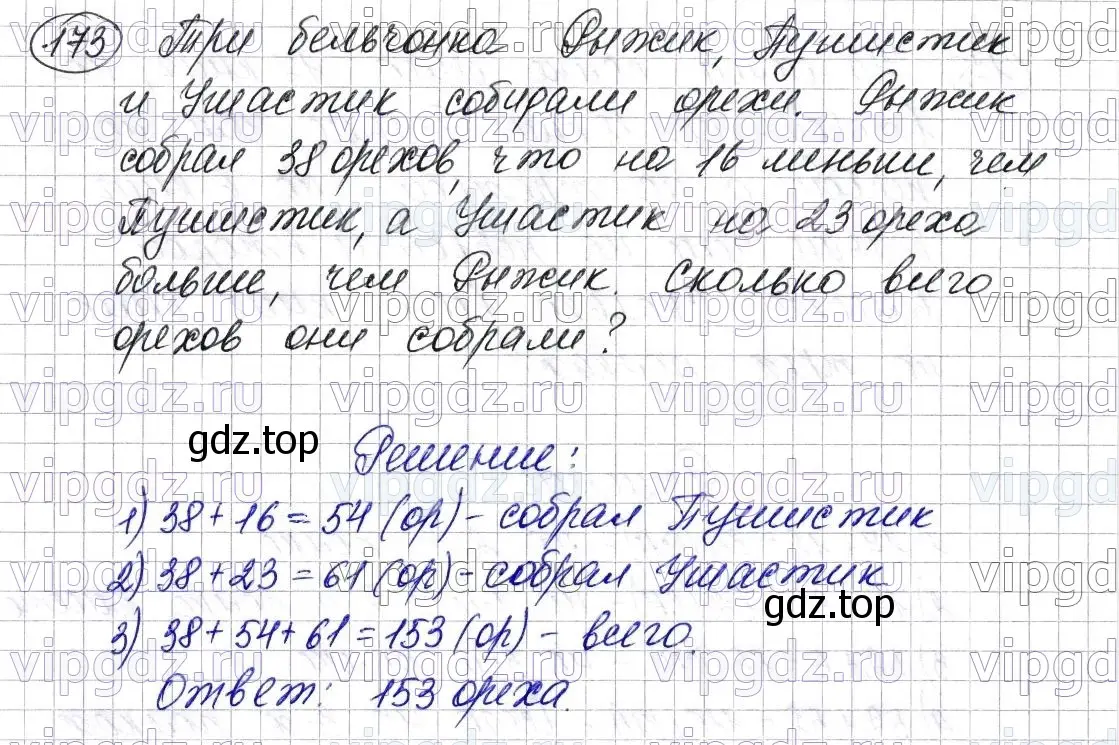 173 Три бельчонка Рыжик, Пушистик
и Ушастик собирали орехи. Рыжик
собрал 38 орехов, что на 16 меньше, чем
Пушистик, а Ушастик на 23 ореха
больше, чем Рыжик. Сколько всего
орехов они собрали?
gdz.top
Решение:
1) 38 + 16 = 54 (ор) - собрал Пушистик
2) 38 + 23 = 61 (ор) - собрал Ушастик
gdz.top
3) 38 + 54 + 61 = 153 (ор) - всего.
Ответ: 153 ореха.
vipgdz.ru